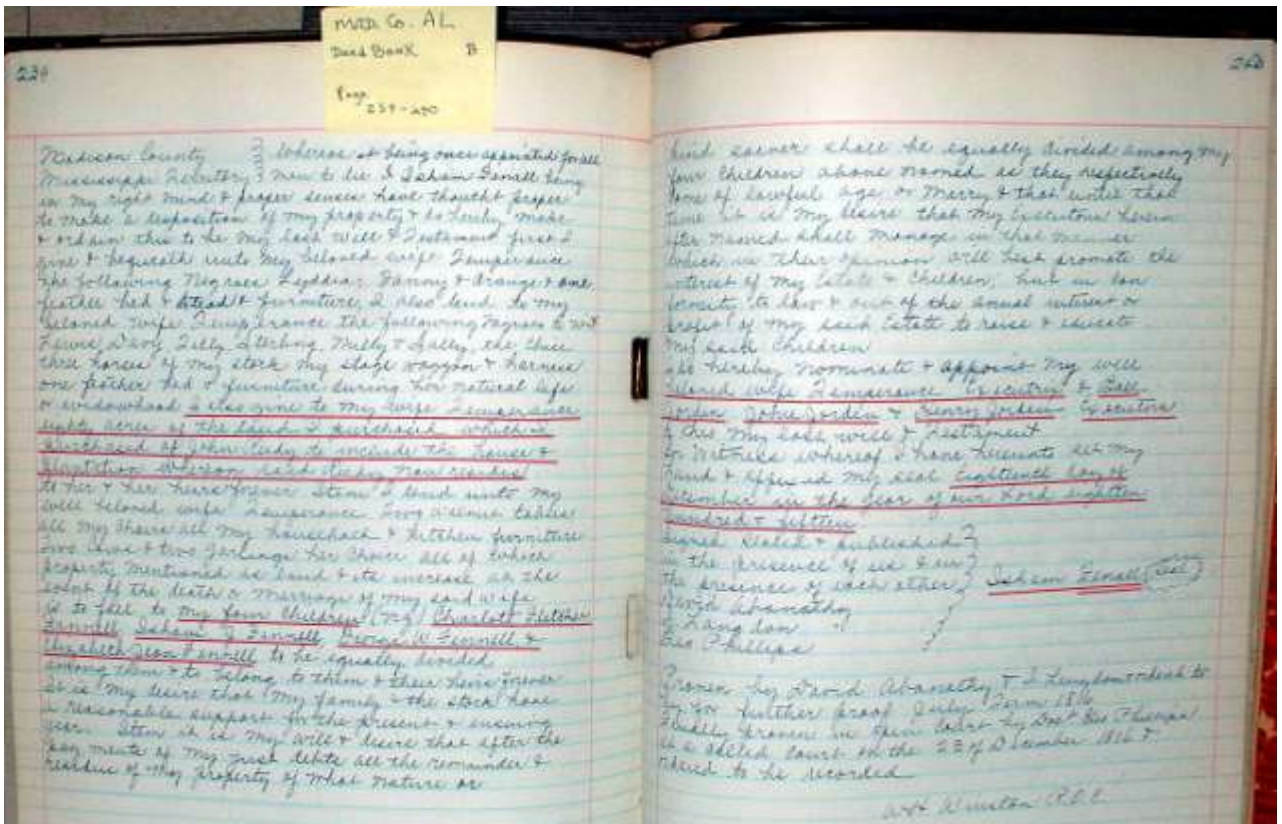 MAD. Co. AL
Deed Book B
Page
239-240
239
Madison County } Whereas it being once appointed for all
Mississippi Territory } men to die I Isham Fennell being
in my right mind & proper senses have thought proper
to make a disposition of my property & do hereby make
& ordain this to be my last will & Testament first I
give & bequeath unto my beloved wife Temperance
the following Negroes Lyddia, Fanny & Orange & one
feather bed & stead & furniture, I also lend to my
beloved wife Temperance the following negroes to wit
Lewis, Davy Tilly Sterling Milly & Sally, the choice
three horses of my stock my stage waggon & harness
one feather bed & furniture during her natural life
or widowhood I also give to my wife Temperance
eighty acres of the land I purchased which I
purchased of John to include the house &
plantation whereon said now resides
to her & her heirs forever Item I lend unto my
well beloved wife Temperance Two tables
all my chairs all my household & kitchen furniture
two cows & two yearlings her choice all of which
property mentioned is lend & its increase at the
event of the death or marriage of my said wife
is to fall to my four children (viz) Charlott Fletcher
Fennell Isham J Fennell George W. Fennell &
Elizabeth Fennell to be equally divided
among them & to belong to them & their heirs forever
It is my desire that my family & the stock have
a reasonable support for the present & ensuing
year. Item it is my will & desire that after the
payments of my just debts all the remainder &
residue of my property of what nature or
240
kind soever shall be equally divided among my
four children above named as they respectively
come of lawful age or marry & that until that
time it is my desire that my Executors herein
after named shall manage in that manner
which in their opinion will best promote the
interest of my Estate & Children, but in con
formity to law & out of the anual interest or
profit of my said Estate to raise & educate
my said children
I do hereby nominate & appoint my well
beloved wife Temperance Executrix &
Jorden John Jorden & Henry Jorden Executors
of this my last will & Testament
In Witness whereof I have hereunto set my
hand & affixed my seal Eighteenth day of
in the year of our Lord eighteen
hundred & fifteen
Signed sealed & published }
in the presence of us & in }
the presence of each other } Isham Fennell (Seal)
David Abanathy
Langdon
Geo Phillips
Proven by David Abanathy & J Langdon & to
for further proof July Term 1816
Finally proven in open court by
at a called court on the 23 of December 1816 &
ordered to be recorded
Winston